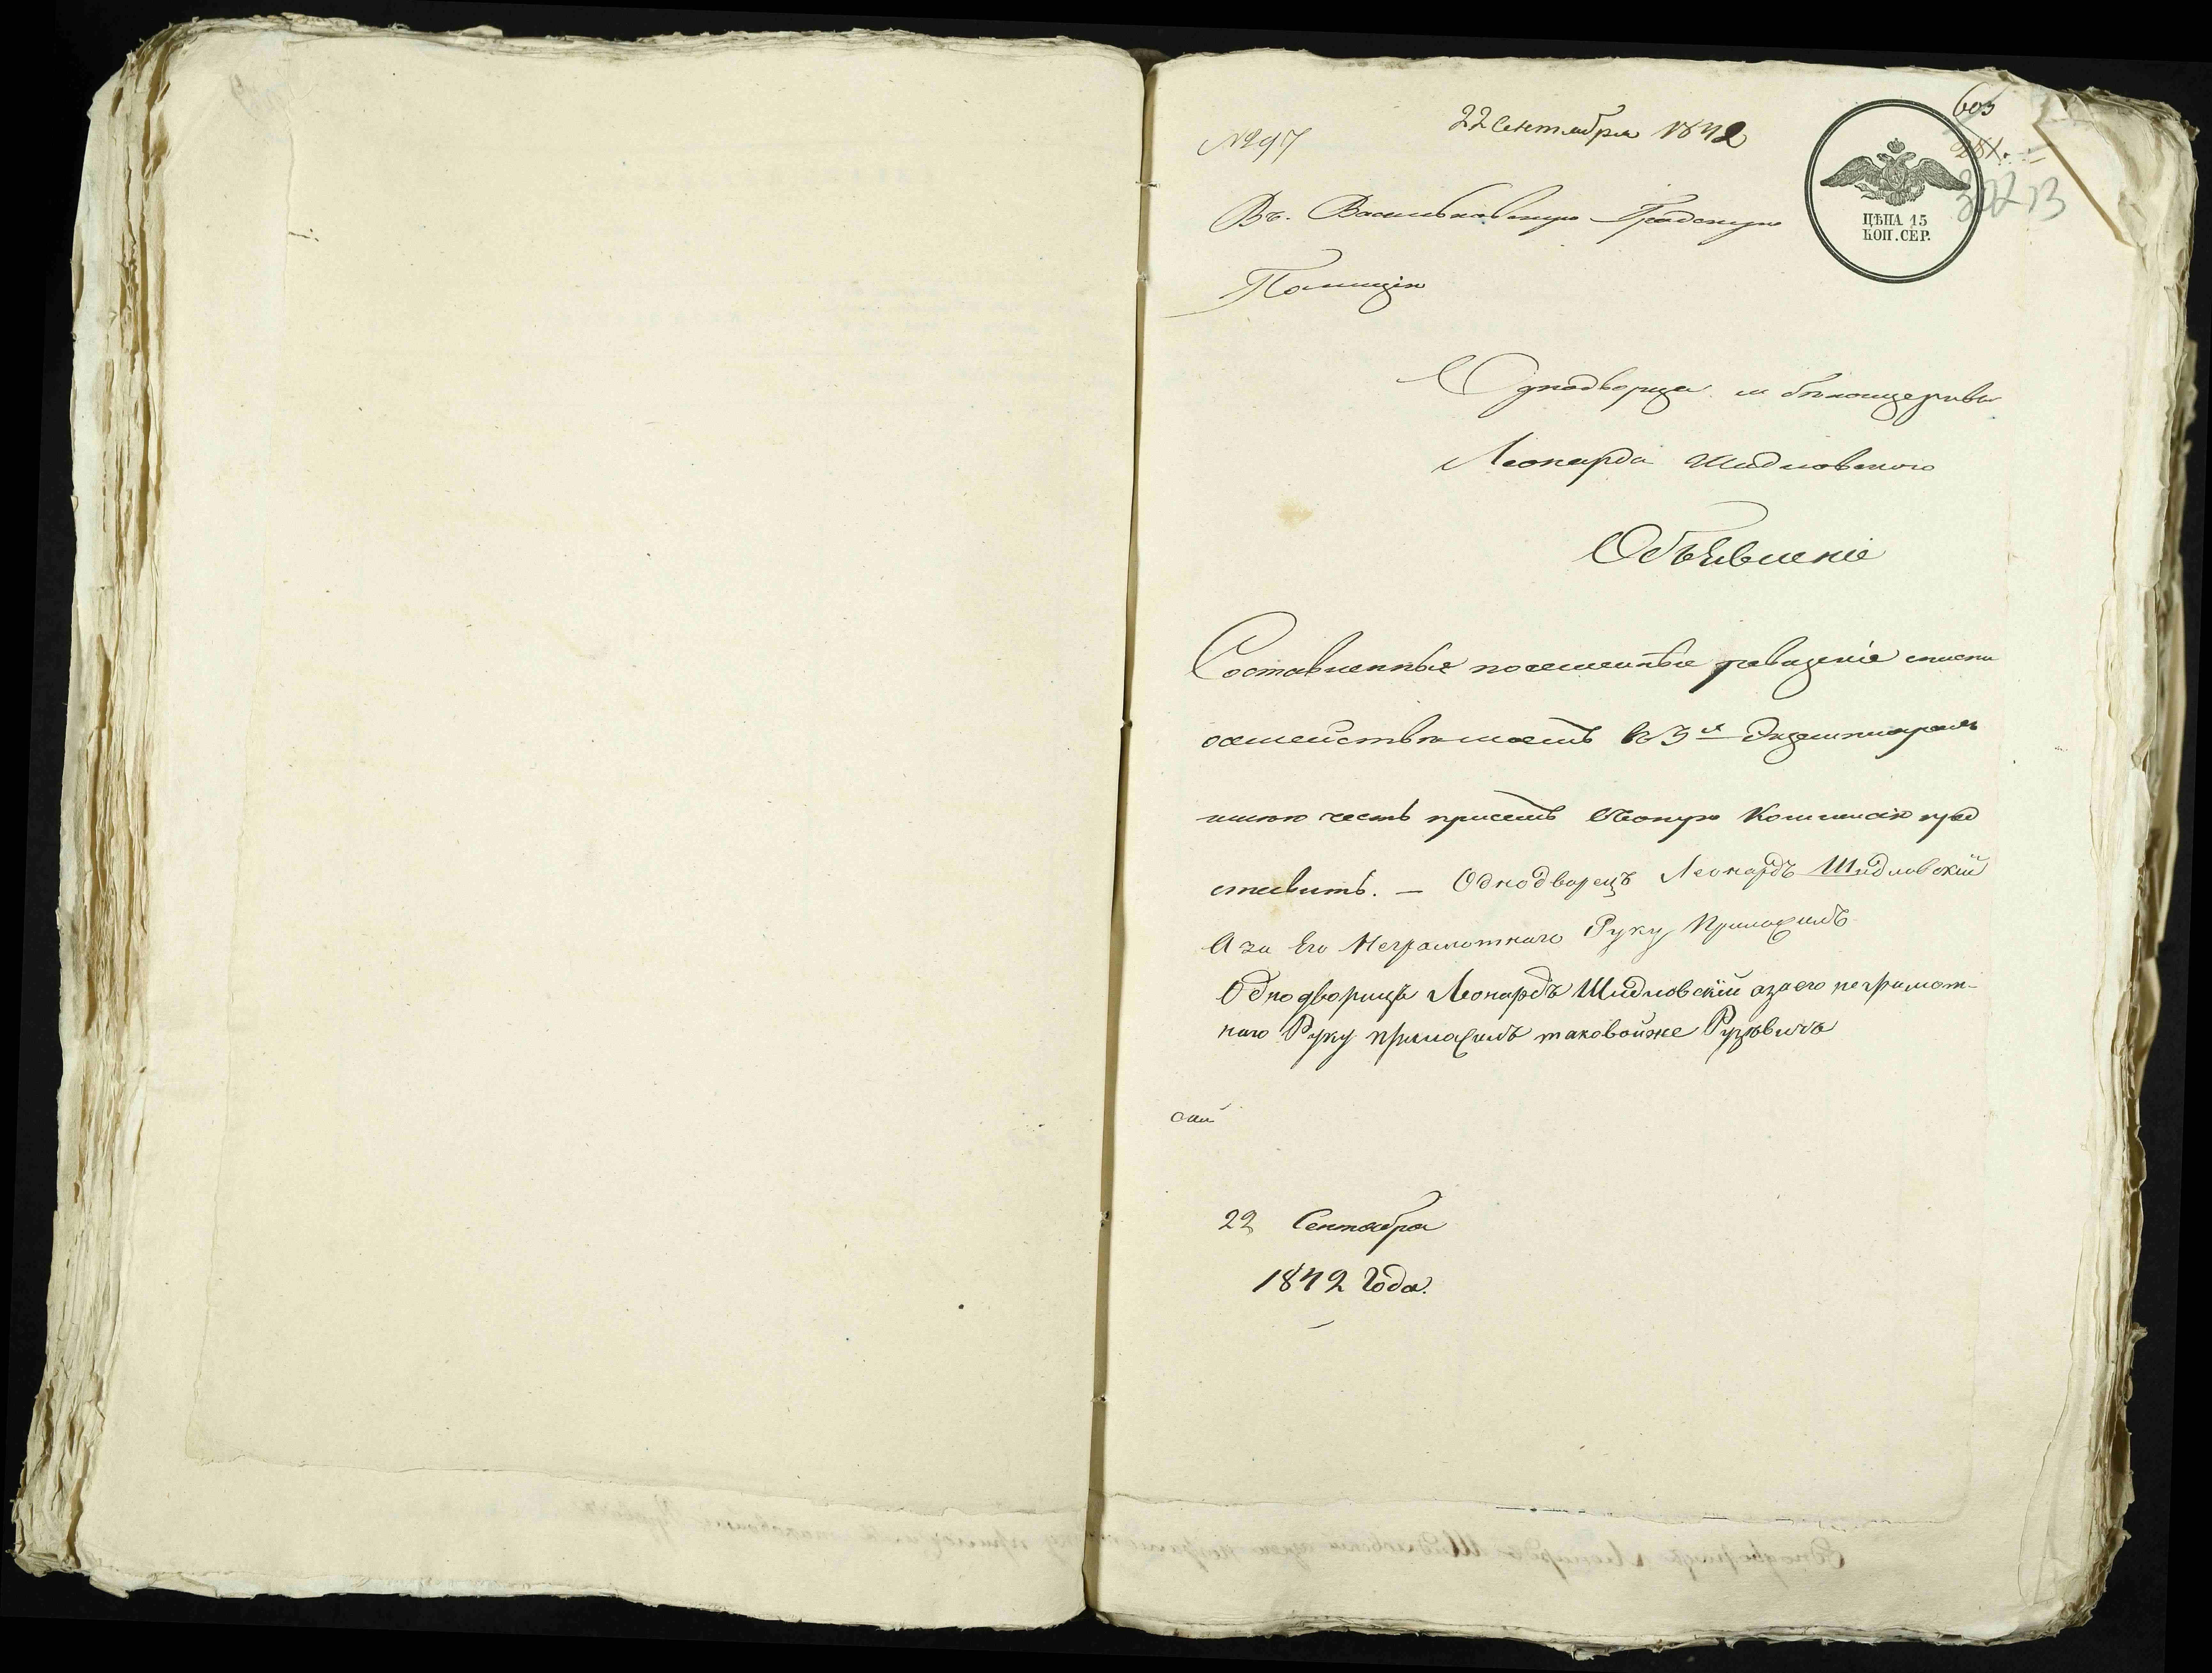 №297
22 Сентября 1842
603
251.
302
ЦѢНА 15
КОП. СЕР.
Въ Васильковскую Градскую
Полицію
Однодворца м Бѣлоцеркви
Леонарда Шидловскаго
Объявленіе
Составленные посемейные ревизскіе списки
осемействѣ моемъ въ 3х Экземплярахъ
имѣю честь присемъ Оную Коммисію пред
ставить. — Однодворецъ Леонардъ Шидловскій
А за Его Неграмотнаго Руку Приложилъ
Однодворицъ Леонардъ Шидловскій азаего неграмот-
наго Руку приложилъ таковойже
22 Сентября
1842 Года.